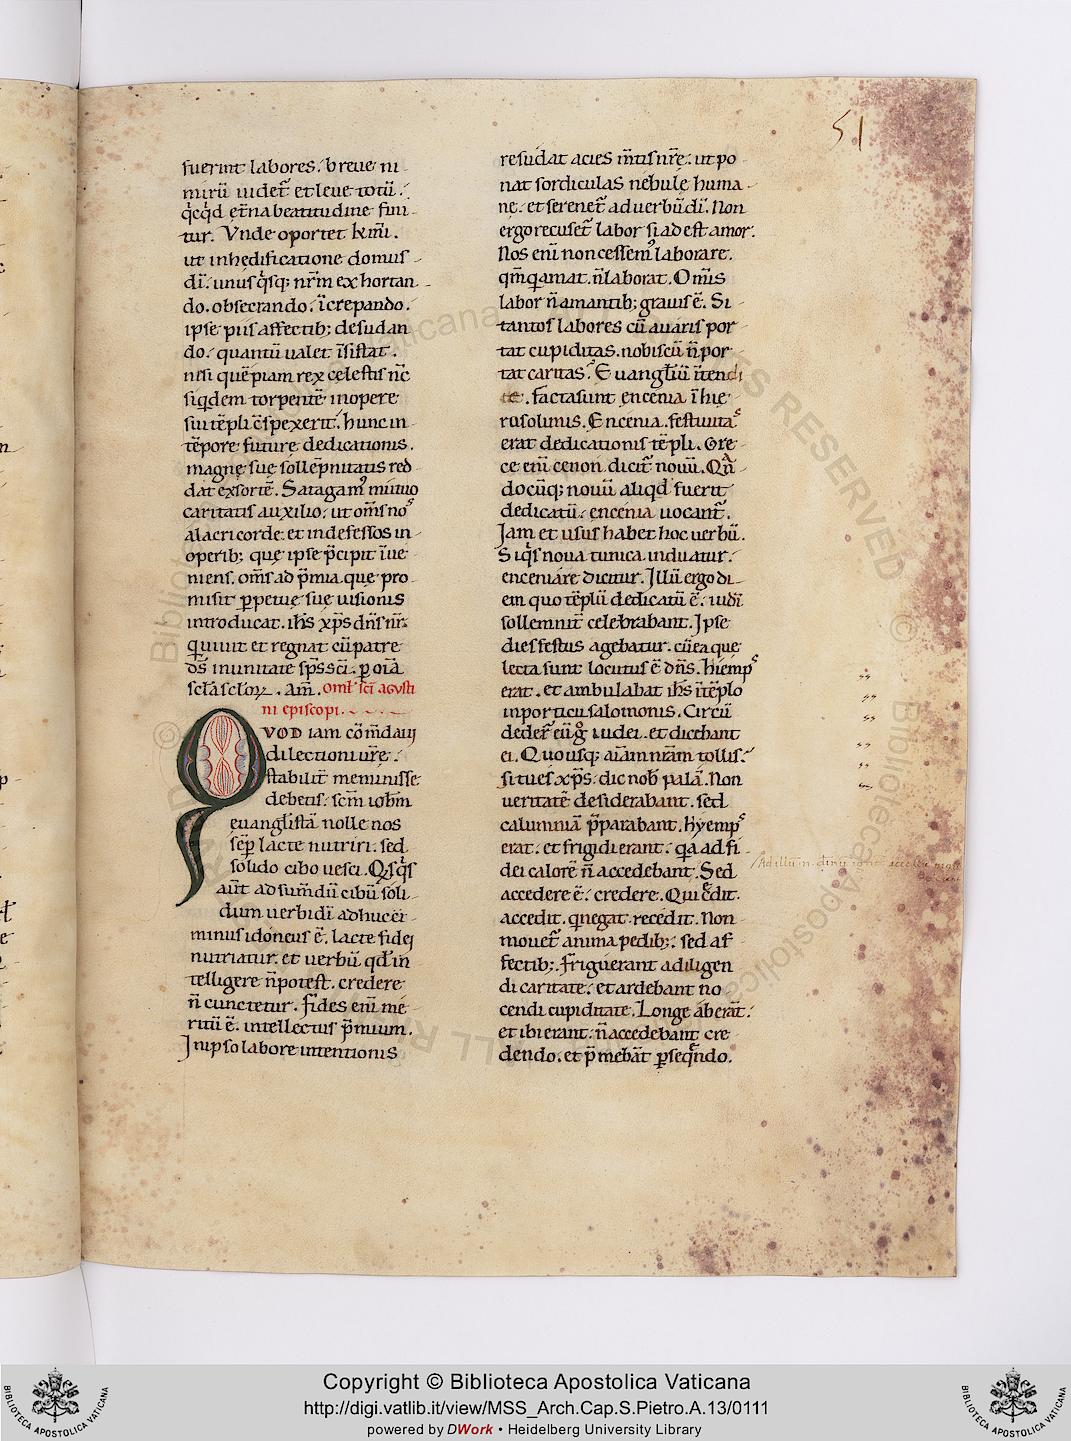 51
fuerint labores. breue ni
mirū uidet᷑ et leue totū.
q̇cq̇d et̄na beatitudine fini
tur. Vnde oportet kṁi.
ut in hedificatione domus
dī. unus q̇sq; nr̄m exhortan
do. obsecrando. īcrepando.
ipse piis affectib; desudan
do. quantū ualet īsistat.
nisi quēpiam rex celestis nc̄
siqdem torpentē inopere
sui tēpli c̄spexerit. hunc in
tēpore future dedicationis.
magne sue sollēpnitatis red
dat exsortē. Satagam᷒ mutuo
caritatis auxilio. ut om̄s no᷒
alacri corde. et indefessos in
operib; que ipse p̄cipit īue
niens. om̄s ad p̄mia. que pro
misit ꝑpetue sue uisionis
introducat. ih̄s xp̄s dn̄s nr̄.
q uiuit et regnat cū patre
ds̄ in unitate sp̄s sc̄i. ꝑ oīa
scl̄a scl̄oꝝ. am̄. oml̄ sc̄i agusti
ni episcopi.
QVOD iam cōm̄dauj
dilectioni ur̄e.
stabilit᷑ meminisse
debetis. sc̄m ioh̄m
euangl̄istā nolle nos
sēp lacte nutriri. sed
solido cibo uesci. Qsq̇s
aut̄ ad sum̄dū cibū soli
dum uerbi dī adhuc ē
minus idoneus ē. lacte fidei
nutriatur. et uerbū qd̄ in
telligere n̄ potest. credere
n̄ cunctetur. fides enī me
ritū ē. intellectus p̄mium.
In ipso labore intentionis
resudat acies m̄tis nr̄e. ut po
nat sordiculas nebulę huma
ne. et serenet᷑ ad uerbū dī. Non
ergo recuset᷑ labor si adest amor.
Nos enī non cessem᷒ laborare.
qm̄ q amat. n̄ laborat. Om̄is
labor n̄ amantib; grauis ē. Si
tantos labores cū auaris por
tat cupiditas. nobiscū n̄ por
tat caritas. Euangl̄iū ītendi
te. facta sunt encenia ī hie
rusolimis. Encenia. festiuita᷒
erat dedicationis tēpli. Gre
ce enī cenon dicit᷑ nouū. Qn̄
docūq; nouū aliqd̄ fuerit
dedicatū. encenia uocant᷑.
Jam et usus habet hoc uerbū.
Si q̇s noua tunica induatur.
enceniare dicitur. Illū ergo di
em quo tēplū dedicatū ē. iudī
sollemnit᷑ celebrabant. Ipse
dies festus agebatur. cū ea que
lecta sunt locutus ē dn̄s. hiemp᷒
erat. et ambulabat ih̄s ī tēplo
in porticu salomonis. Circū
deder̄ eū g̊ iudei. et dicebant
ei. Quousq; aīam nr̄am tollis.
si tu es xp̄s. dic nob̄ palā. Non
ueritatē desiderabant. sed
calumniā p̄parabant. hyemp᷒
erat. et frigidi erant. qa ad fi
dei calorē n̄ accedebant. Sed
accedere ē. credere. Qui c̄dit.
accedit. q negat. recedit. Non
mouet᷑ anima pedib;. sed af
fectib;. friguerant a diligen
di caritate. et ardebant no
cendi cupiditate. Longe aberāt.
et ibi erant. n̄ accedebant cre
dendo. et p̄mebāt ꝑseq̄ndo.
Copyright © Biblioteca Apostolica Vaticana
http://digi.vatlib.it/view/MSS_Arch.Cap.S.Pietro.A.13/0111
powered by DWork • Heidelberg University Library